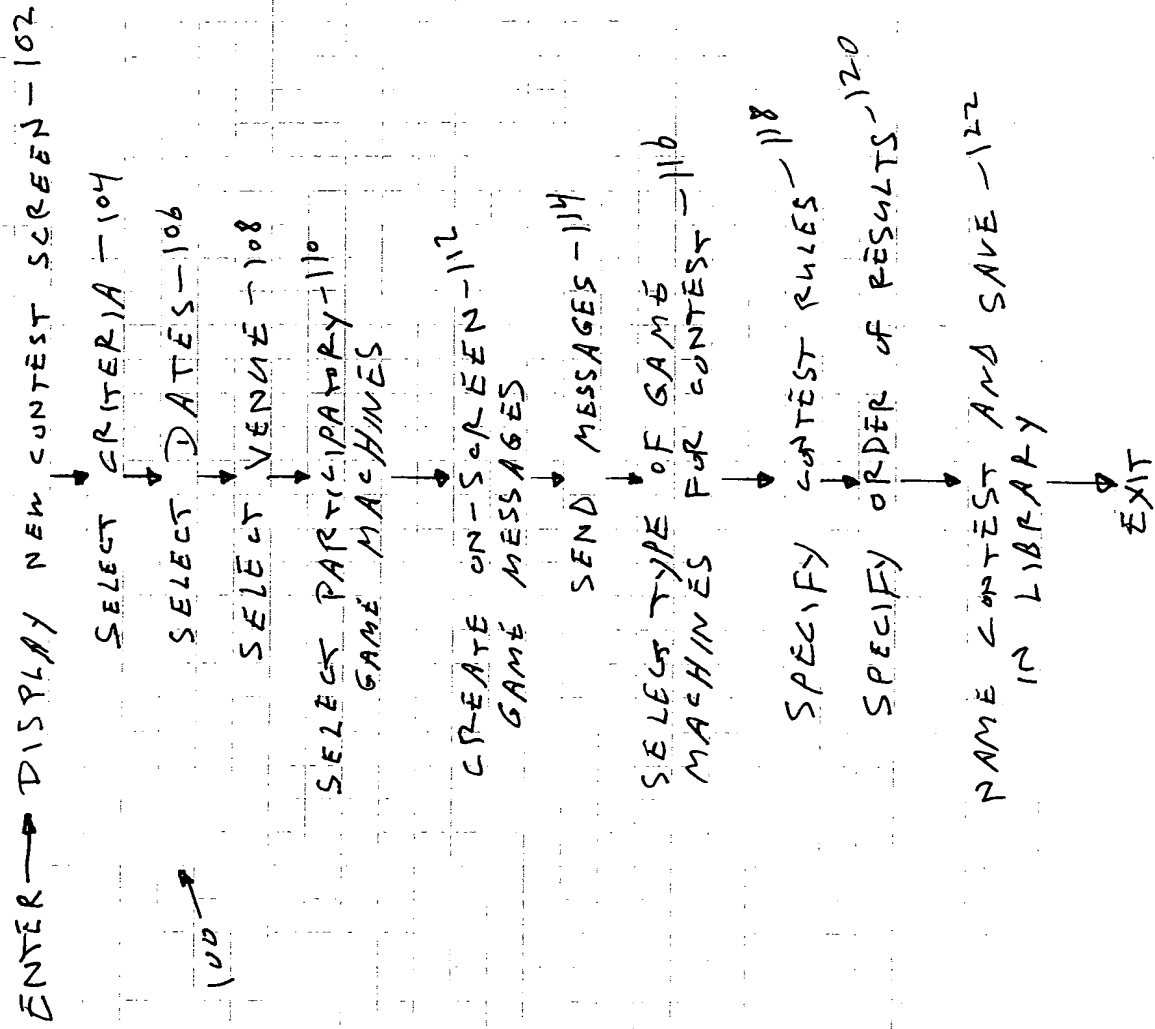 ENTER → DISPLAY NEW CONTEST SCREEN-102
SELECT CRITERIA-104
SELECT DATES-106
SELECT VENUE-108
SELECT PARTICIPATORY-110
GAME MACHINES
CREATE ON-SCREEN-112
GAME MESSAGES
SEND MESSAGES-114
SELECT TYPE OF GAME
MACHINES FOR CONTEST-116
SPECIFY CONTEST RULES-118
SPECIFY ORDER OF RESULTS-120
NAME CONTEST AND SAVE-122
IN LIBRARY
EXIT
100